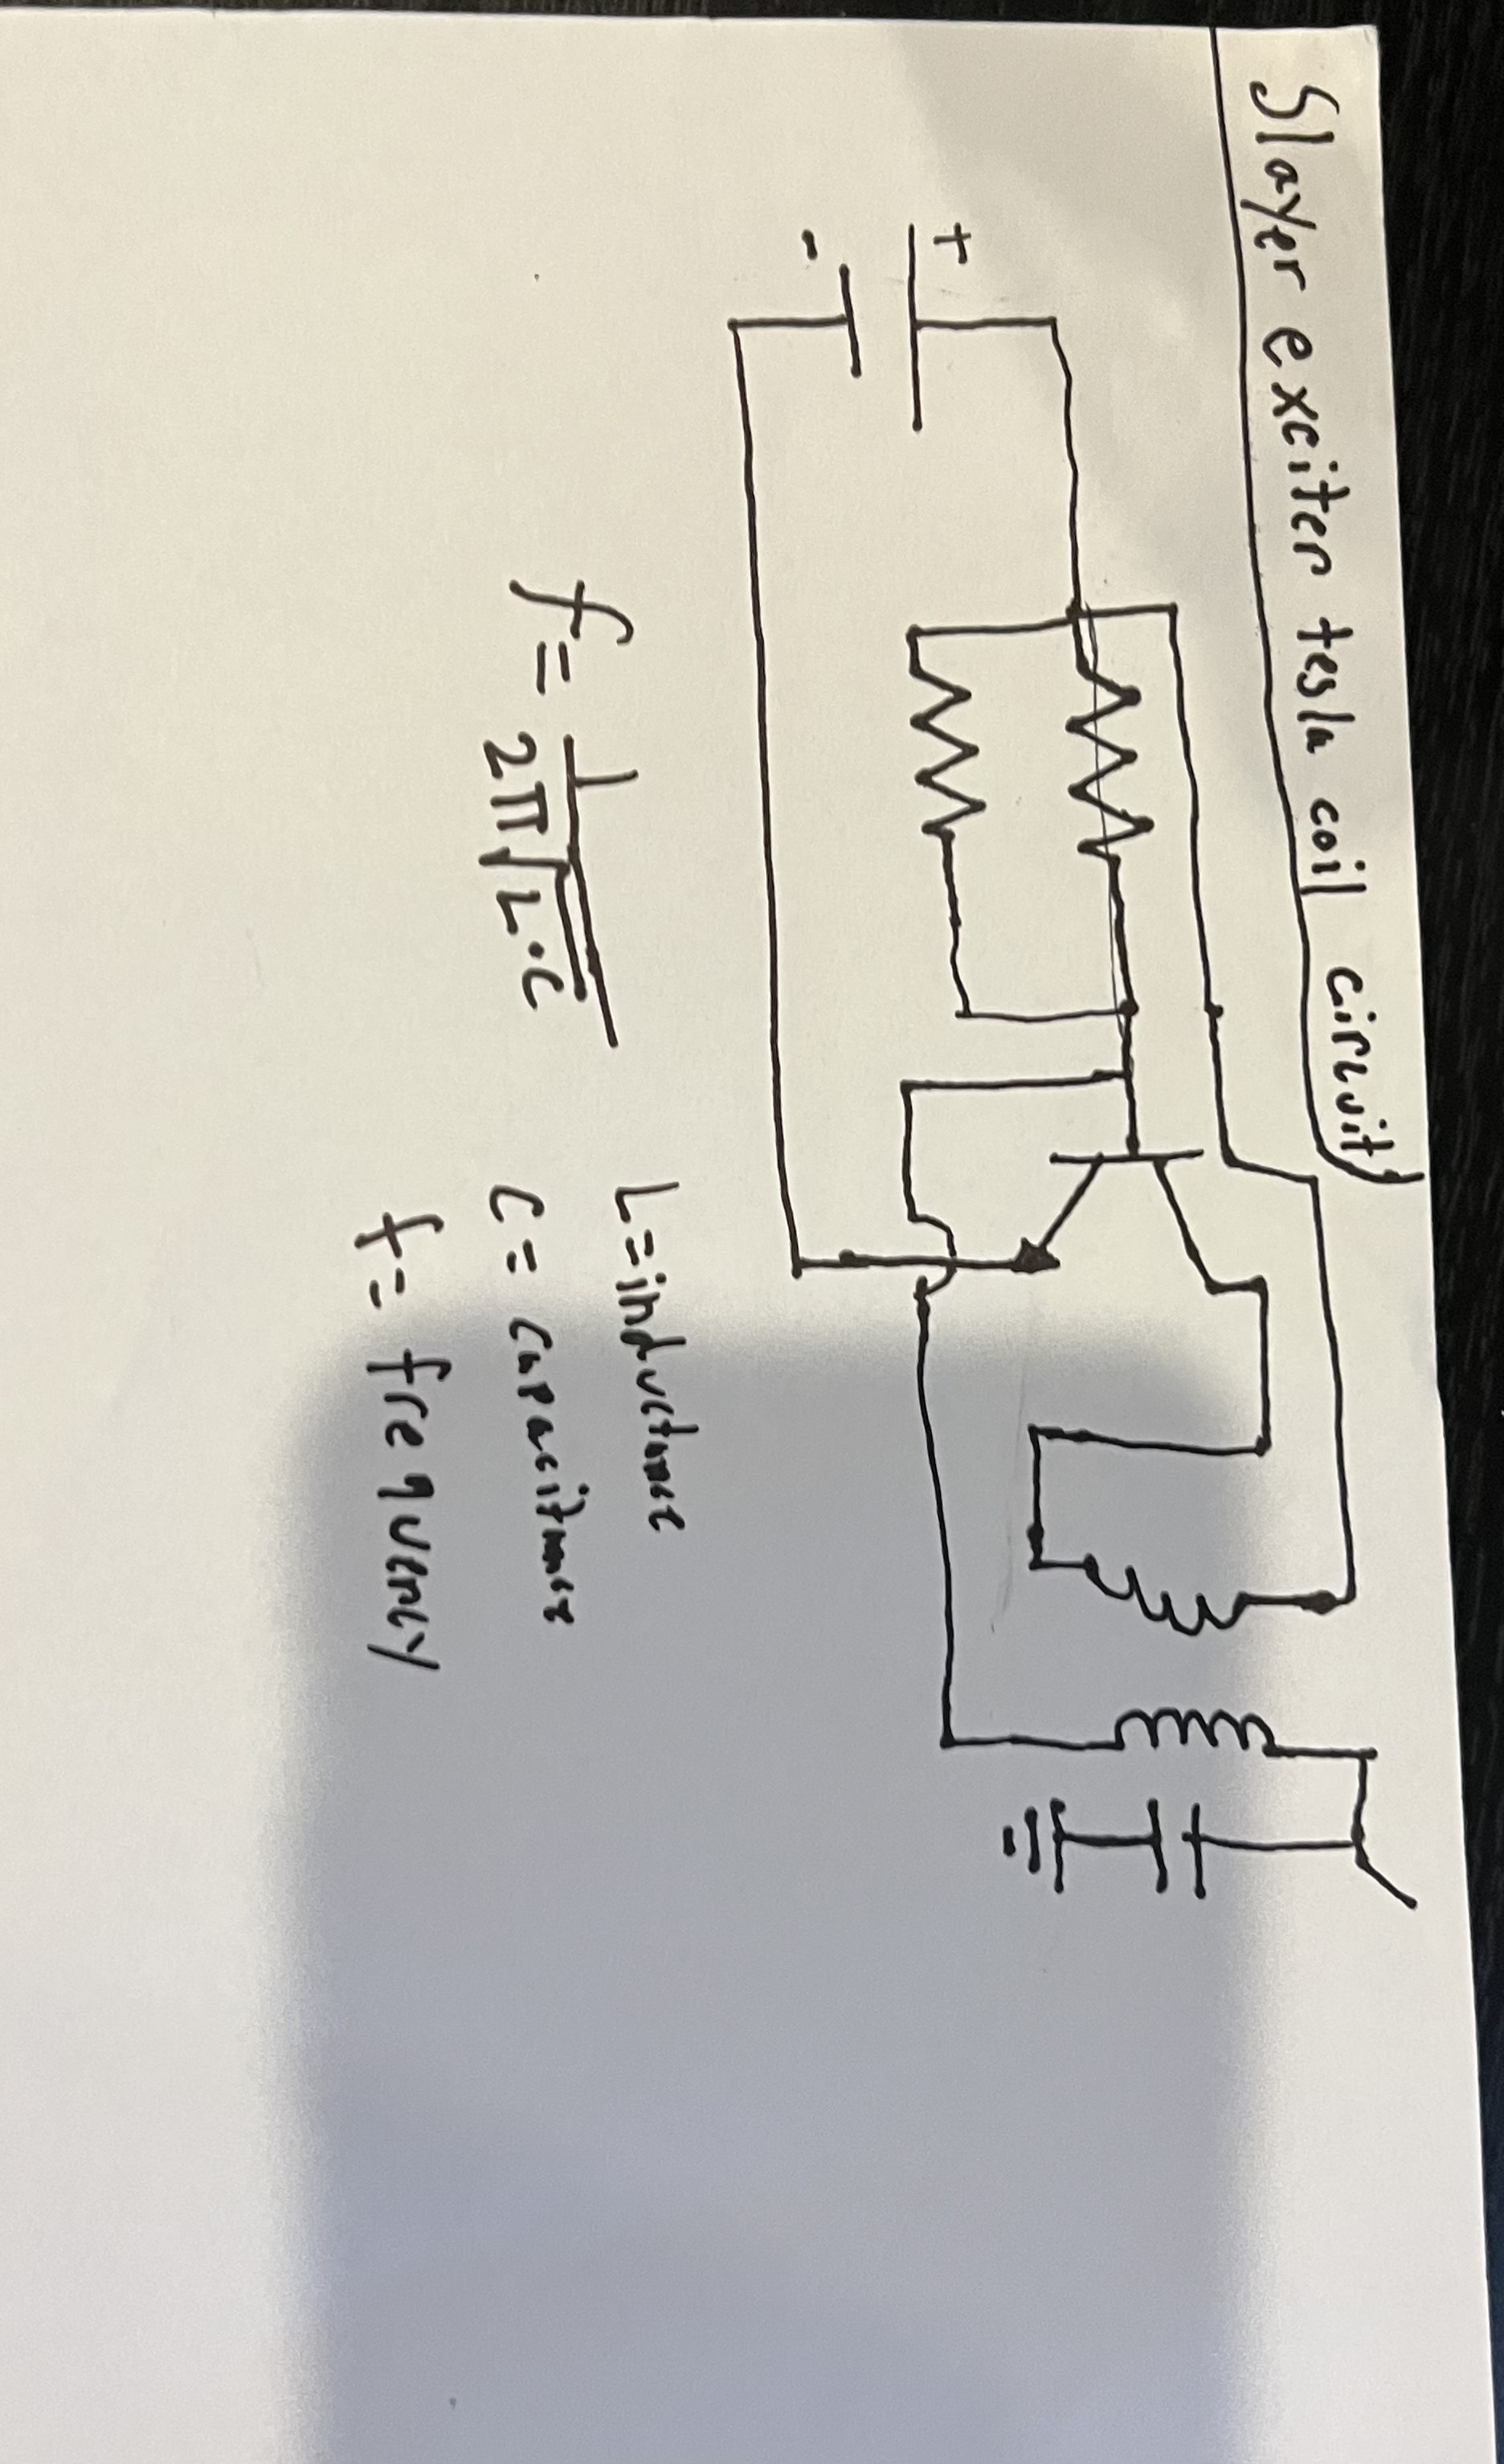 Slayer exciter tesla coil circuit
+
-
f = 1
2π√L·C
L = inductance
C = capacitance
f = frequency